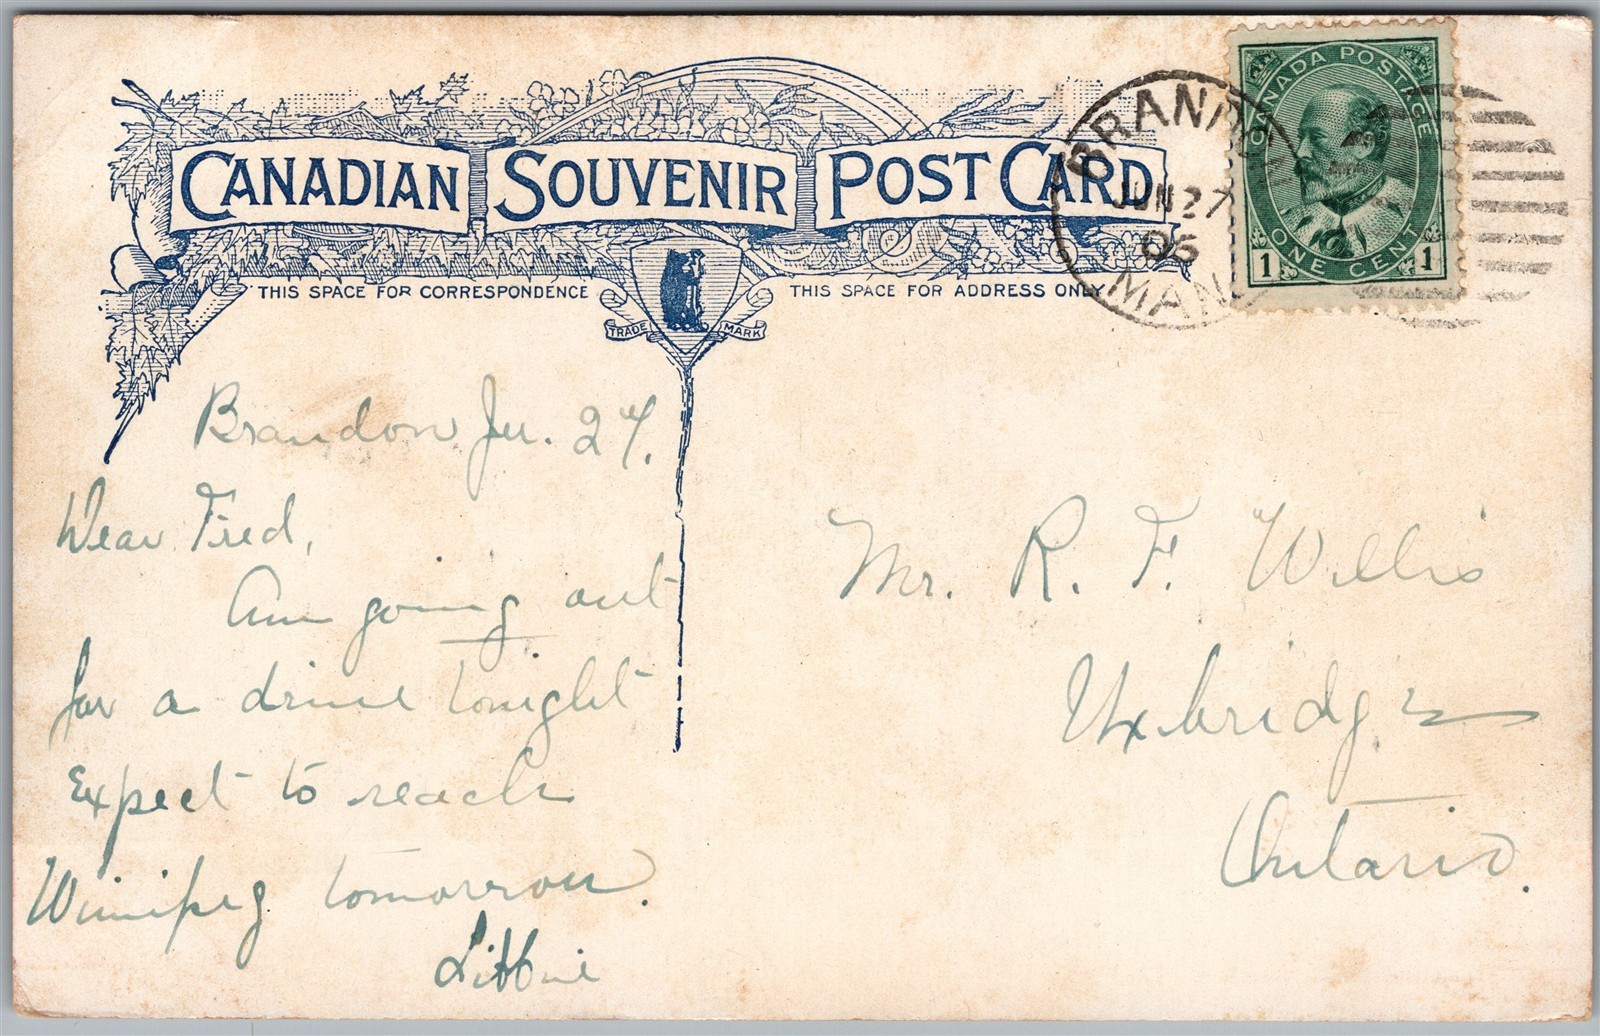 CANADIAN SOUVENIR POST CARD
THIS SPACE FOR CORRESPONDENCE
THIS SPACE FOR ADDRESS ONLY
TRADE MARK
BRANDON
JUN 27
05
MAN
CANADA POSTAGE
ONE CENT
1 1
Brandon Ju. 27.
Dear Fred,
Am going out
for a drive tonight
Expect to reach
Winnipeg tomorrow.
Libbie
Mr. R. F. Willis
Uxbridge
Ontario.